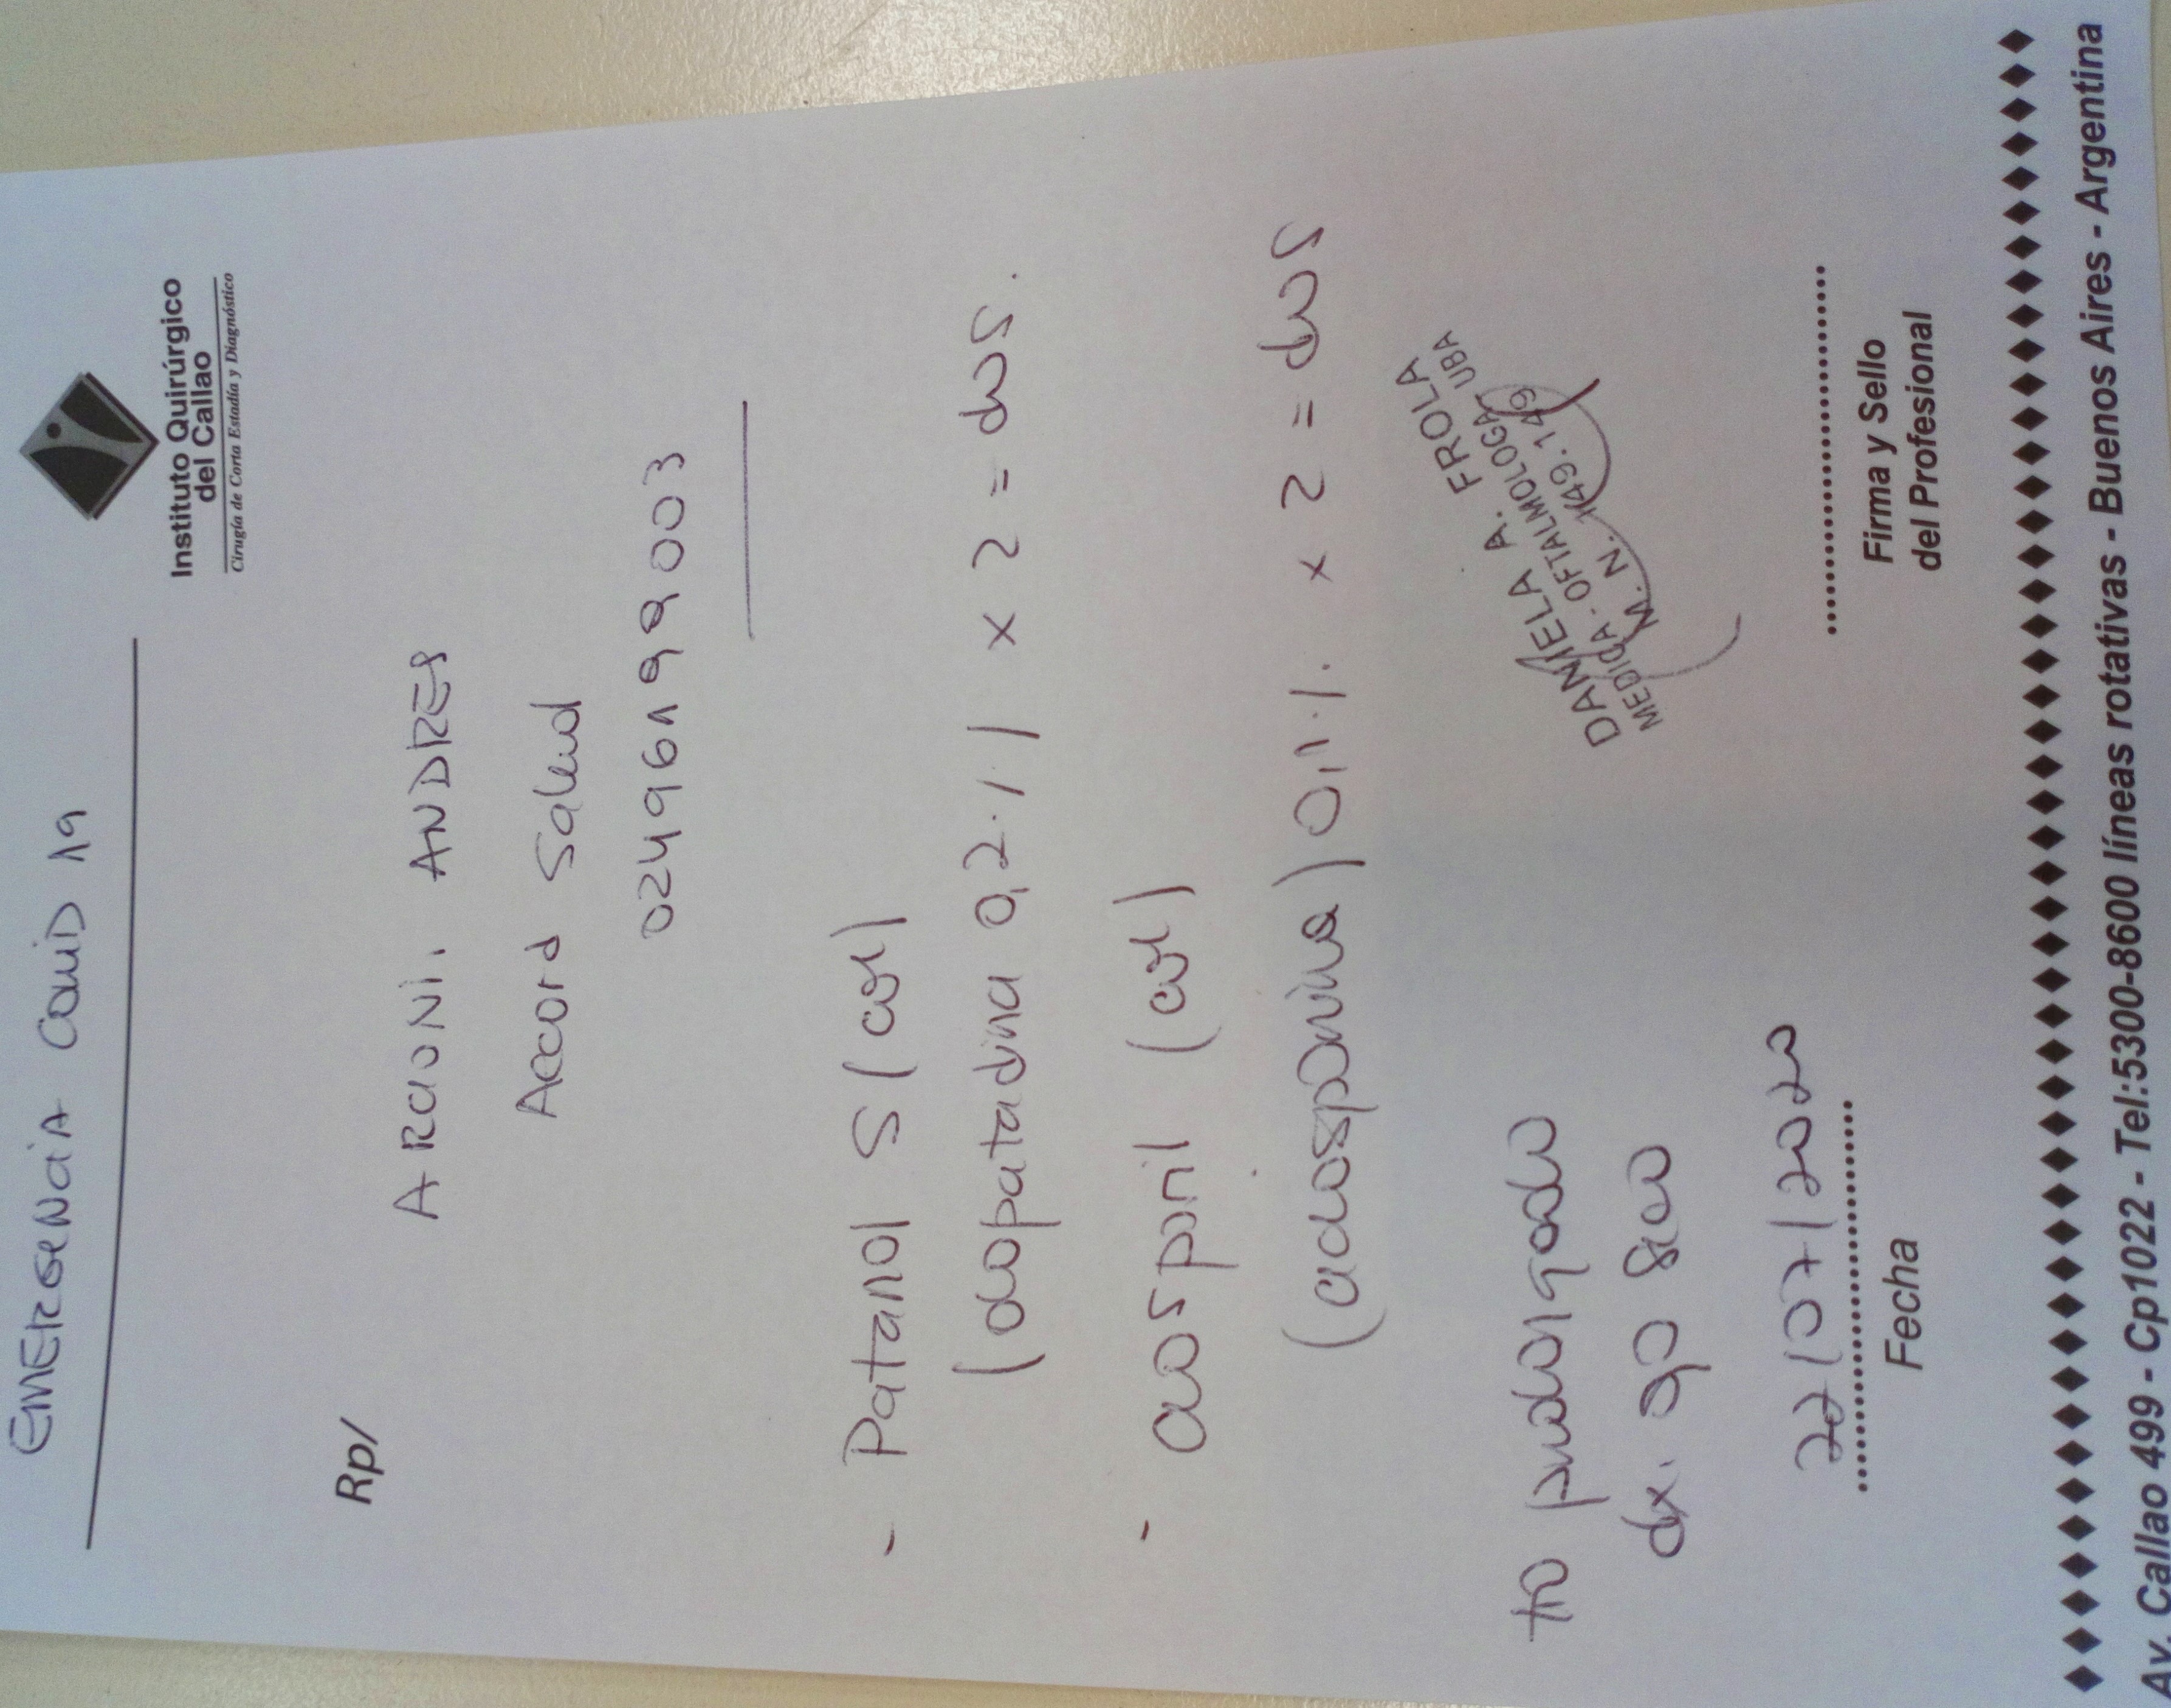 EMERGENCIA COVID 19
Instituto Quirúrgico
del Callao
Cirugía de Corta Estadía y Diagnóstico
Rp/
ARCIONI, ANDRES
Accord Salud
02496199003
- Patanol S (col)
(olopatadina 0,2%) x 2 = dos.
- closporil (col)
(ciclosporina) 0,1% x 2 = dos
tto prolongado
dx. ojo seco
DANIELA A. FROLA
MEDICA - OFTALMOLOGA UBA
M. N. 149.149
22/07/2020
Fecha
Firma y Sello
del Profesional
Av. Callao 499 - Cp1022 - Tel:5300-8600 líneas rotativas - Buenos Aires - Argentina